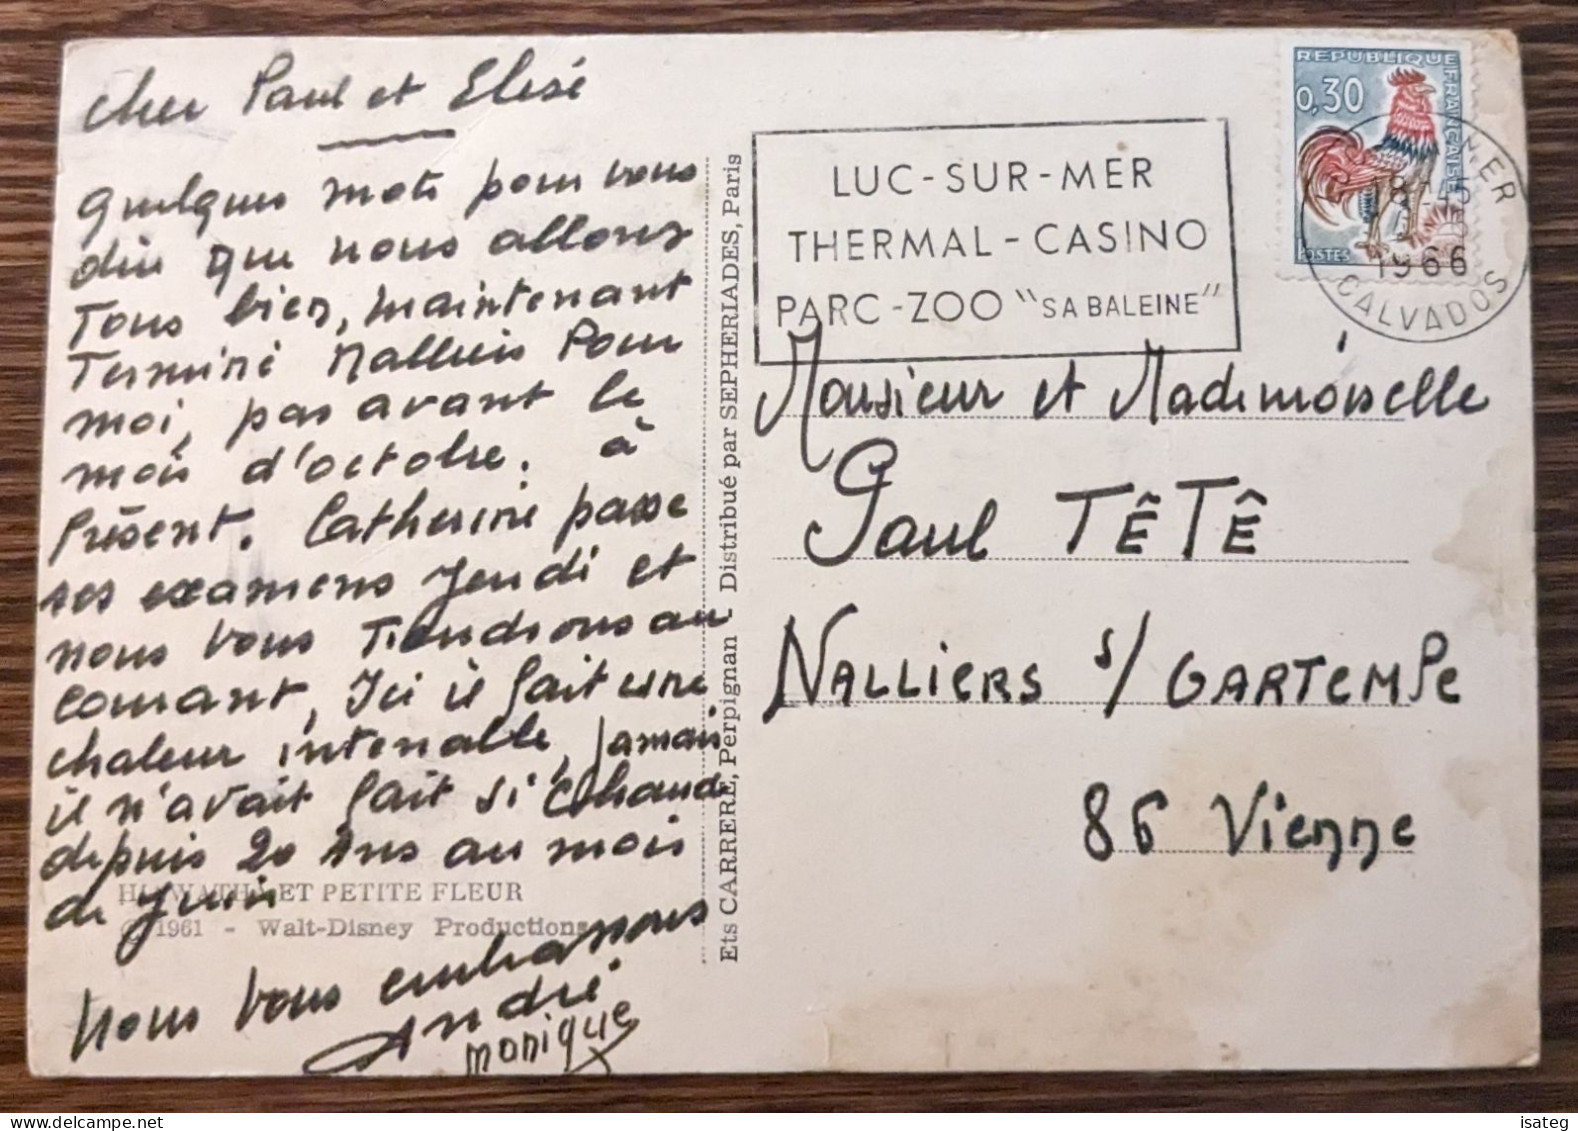 Cher Paul et Elisé
quelques mots pour vous
dire que nous allons
Tous bien, maintenant
Terminé Nalliers Pour
moi, pas avant le
mois d'octobre. à
Présent. Catherine passe
ses examens Jeudi et
nous vous Tiendrons au
courant, Ici il fait une
chaleur intenable, Jamais
il n'avait fait si chaud
depuis 20 Ans au mois
de Juin
Nous vous embrassons
André
monique
HIAWATHA ET PETITE FLEUR
© 1961 - Walt-Disney Productions
Ets CARRERE, Perpignan - Distribué par SEPHERIADES, Paris
LUC-SUR-MER
THERMAL-CASINO
PARC-ZOO "SA BALEINE"
REPUBLIQUE FRANCAISE
0,30
POSTES
MER
18
1966
CALVADOS
Monsieur et Mademoiselle
Paul TÊTÊ
NALLIERS s/ GARTEMPE
86 Vienne
isateg